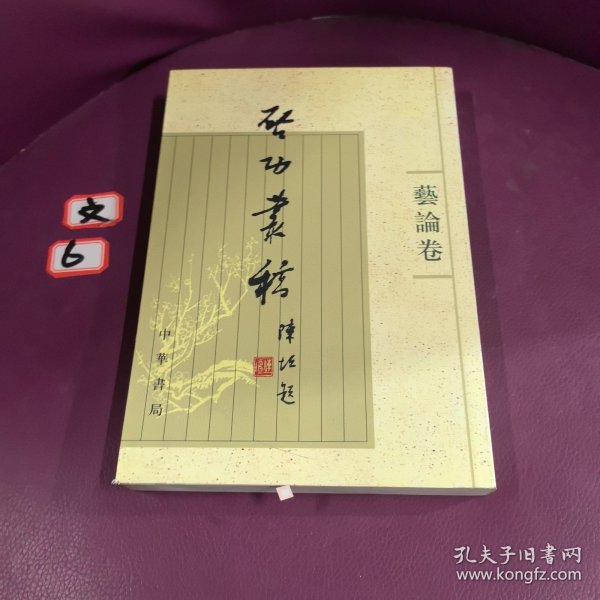 启功叢稿
陳垣題
藝論卷
中華書局
文
6
孔夫子旧书网
www.kongfz.com